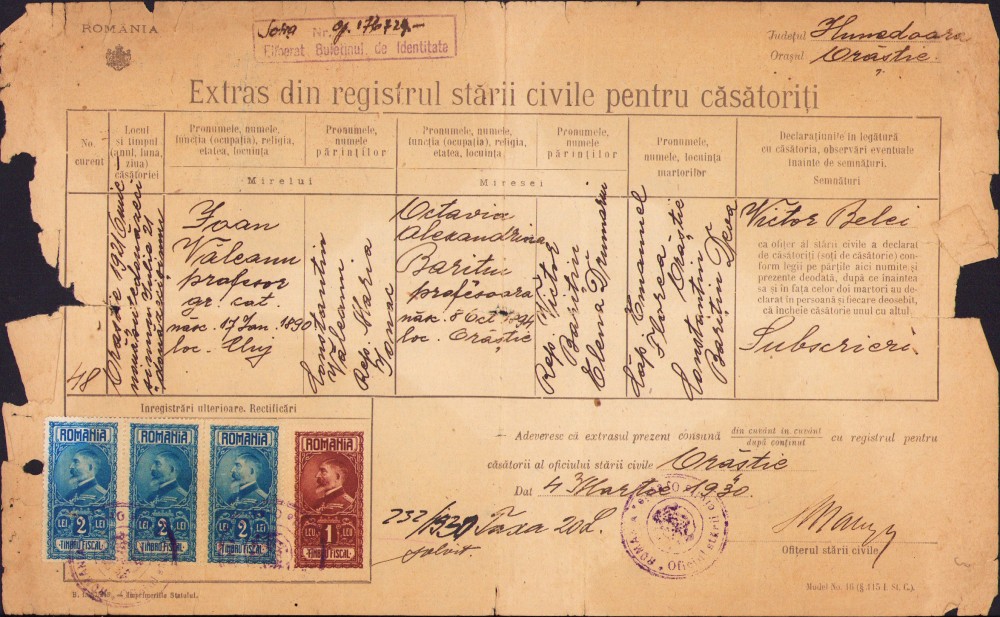 ROMÂNIA
Nr. 176729.-
Eliberat Buletinul de Identitate
Județul Hunedoara
Orașul Orăștie.
Extras din registrul stării civile pentru căsătoriți
No.
curent
Locul
și timpul
(anul, luna,
ziua)
căsătoriei
Pronumele, numele,
funcția (ocupația), religia,
etatea, locuința
Mirelui
Pronumele,
numele
părinților
Pronumele, numele,
funcția (ocupația), religia,
etatea, locuința
Miresei
Pronumele,
numele
părinților
Pronumele,
numele, locuința
martorilor
Declarațiunile în legătură
cu căsătoria, observări eventuale
înainte de semnături.
Semnături
48
Orăștie 1921
Iulie 21
Ioan
Văleanu
profesor
gr. cat.
născ. 17 Jan. 1890
loc. Cluj
Constantin
Văleanu
Rep. Maria
Octavia
Alexandrina
Barițiu
profesoara
născ. 8 Oct 1894
loc. Orăștie
Rep. Victor
Barițiu
Elena Drumariu
Căp. Emanuel
Florea Orăștie
Constantin
Barițiu Deva
Victor Belei
ca ofițer al stării civile a declarat
de căsătoriți (soți de căsătorie) conform
legii pe părțile aici numite și
prezente deodată, după ce înaintea
sa și în fața celor doi martori au
declarat în persoană și fiecare deosebit,
că încheie căsătorie unul cu altul.
Subscrieri
Inregistrări ulterioare. Rectificări
ROMANIA ROMANIA ROMANIA ROMANIA
LEI 2 LEI LEI 2 LEI LEI 2 LEI LEU 1 LEU
TIMBRU FISCAL TIMBRU FISCAL TIMBRU FISCAL TIMBRU FISCAL
— Adeveresc că extrasul prezent consună din cuvânt în cuvânt / după conținut cu registrul pentru
căsătorii al oficiului stării civile Orăștie
Dat 4 Martie 1930.
232/930 Taxa 20 L.
solvit
Ofițerul stării civile
— Imprimeriile Statului.
Model No. 16 (§ 115 l. St. C.).